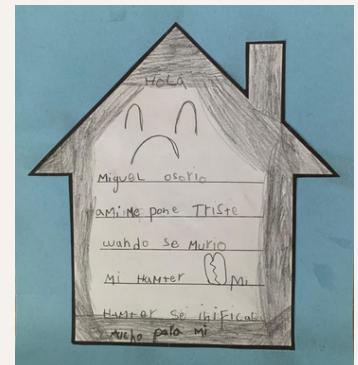 HOLA
Miguel osorio
aMi Me pone Triste
wando se Murio
Mi HaMter Mi
HaMter se inificad
Mucho para Mi